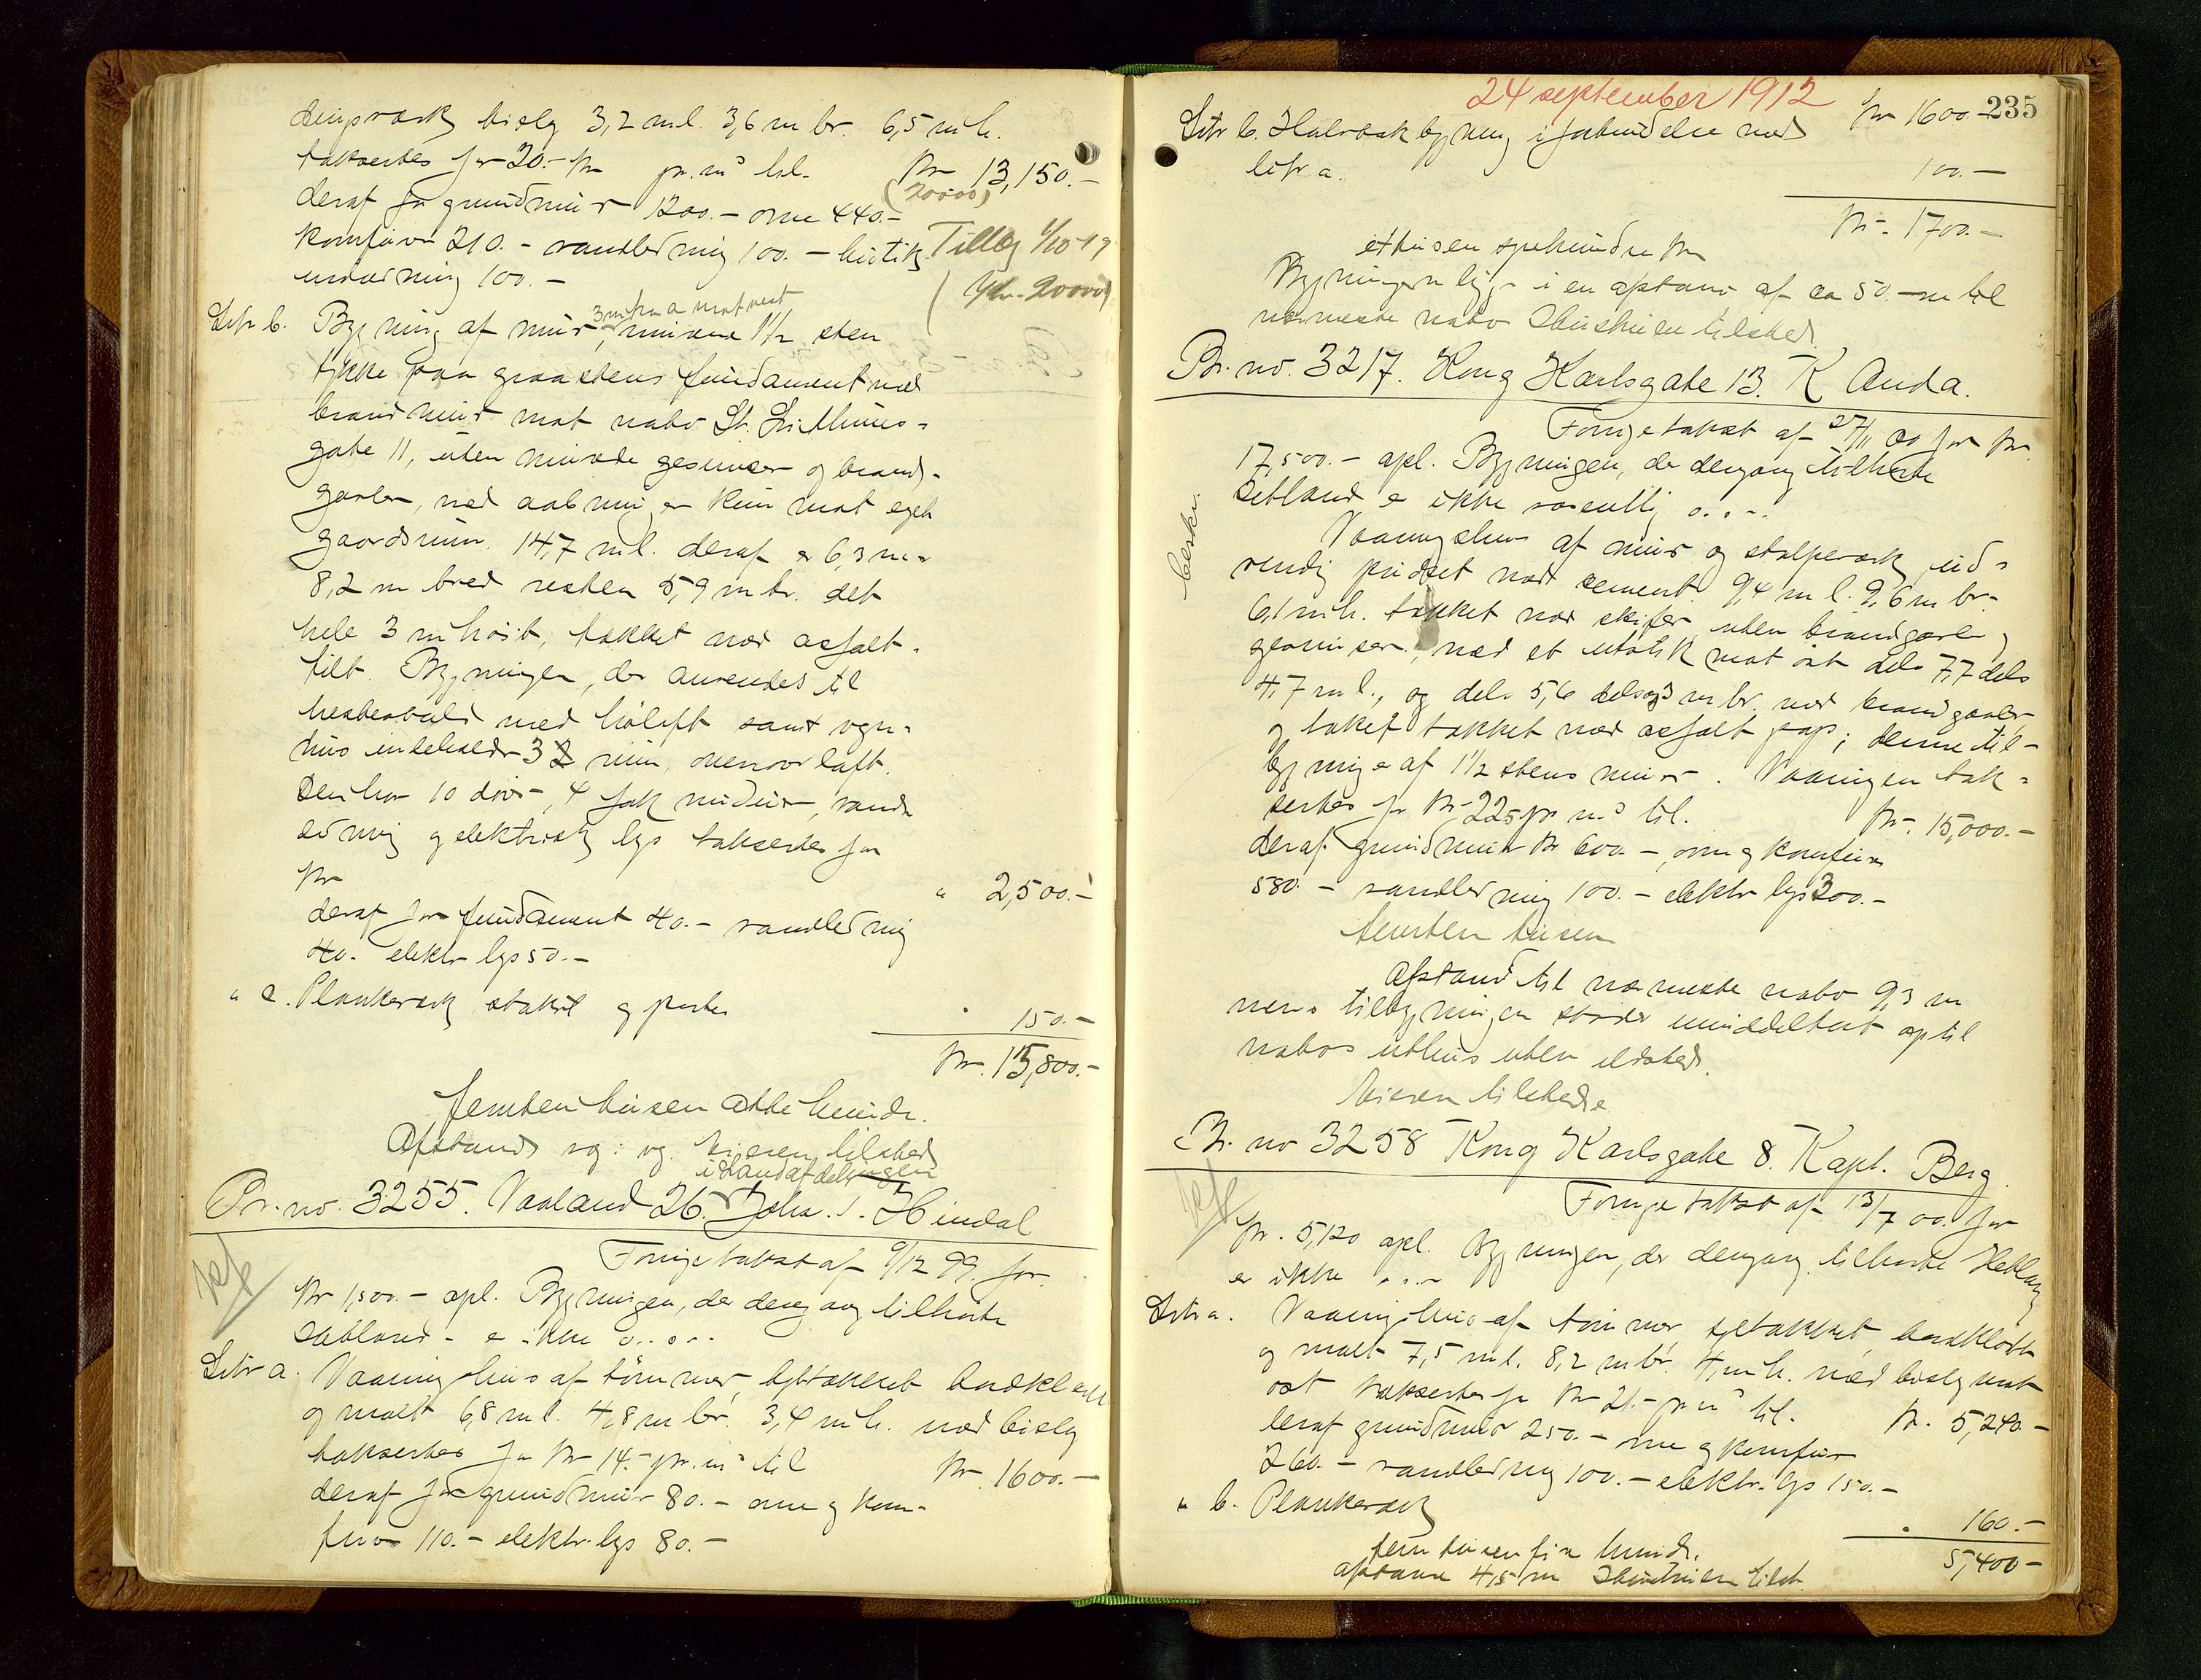 bislag 3,2 m l. 3,6 m br. 6,5 m h.
takseres for 20.- kr pr. m³ til. Kr 13,150.-
(20000)
deraf for grundmur 1200.- ovne 440.-
komfurer 210.- vandledning 100.- butik Tillæg 1/10-19
indredning 100.- (Kr. 20000)
Litr b. Bygning af mur, 3 m fra a mot vest murene 1½ sten
tykke paa graastens fundament med
brandmur mot nabo St.
gate 11, uten murede gesimser og brand-
gavler, med aabninger kun mot eget
gaardsrum. 14,7 m l. deraf er 6,3 m
8,2 m bred resten 5,9 m br. det
hele 3 m høit, tækket med asfalt-
filt. Bygningen, der anvendes til
hestestald med høloft samt vogn-
hus indeholder 3 rum, ovenover loft.
Den har 10 dører, 4 fak vinduer, vand-
ledning og elektrisk lys takseres for
Kr " 2,500.-
deraf for fundament 40.- vandledning
40.- elektr lys 50.-
" c. Plankeverk stakit og porter " 150.-
Kr. 15,800.-
femten tusen otte hundr.
Afstand og: og eieren tilsted
Br. no. 3255. Vaaland 26. Johs. S. Hindal
Forrige takst af 9/12 99. for
Kr 1,500.- opl. Bygningen, der dengang tilhørte
Sætland - er ikke o...
Litr a. Vaaningshus af tømmer, tegltækket bordklædt
og malt 6,8 m l. 4,8 m br. 3,4 m h. med bislag
takseres for Kr 14.- pr. m³ til Kr. 1600.-
deraf for grundmur 80.- ovne og kom-
fur 110.- elektr. lys 80.-
24 september 1912
235
Kr 1600.-
Litr b. Halvtakbygning i forbindelse med
litr a. 100.-
Kr. 1700.-
ettusen syvhundre kr
Bygningen ligger i en afstand af ca 50.- m til
nærmeste nabo Hustruen tilsted.
Br. no. 3217. Kong Karlsgate 13. K Anda.
Forrige takst af 27/11 00 for kr
17,500.- opl. Bygningen, der dengang tilhørte
Sætland er ikke væsentlig o...
Vaaningshus af mur og stolpeverk, ud-
vendig pudset med cement 9,4 m l. 9,6 m br.
6,1 m h. tækket med skifer uten brandgavler og
gesimser, med et utstik mot øst dels 7,7 dels
4,7 m l., og dels 5,6 dels 3 m br. med brandgavler
og taket tækket med asfalt pap; denne til-
bygning er af 1½ stens mur. Vaaningen tak-
seres for Kr 22,5 pr m³ til. Kr. 15,000.-
deraf grundmur Kr 600.-, ovne og komfurer
580.- vandledning 100.- elektr lys 300.-
femten tusen
Afstand til nærmeste nabo 9,3 m
mens tilbygningen støder umiddelbart op til
nabos uthus uten ildsted.
Eieren tilstede
Br. no 3258 Kong Karlsgate 8. Kapt. Berg.
Forrige takst af 13/7 00. for
Kr. 5,120 opl. Bygningen, der dengang tilhørte
er ikke o...
Litr a. Vaaningshus af tømmer, tegltækket bordklædt
og malt 7,5 m l. 8,2 m br. 4, m h. med bislag mot
øst takseres for Kr 21.- pr m³ til. Kr. 5,240.-
deraf grundmur 250.- ovne og komfur
260.- vandledning 100.- elektr. lys 150.-
" b. Plankeverk " 160.-
5,400-
fem tusen fire hundr.
afstand 4,5 m Hustruen tilst